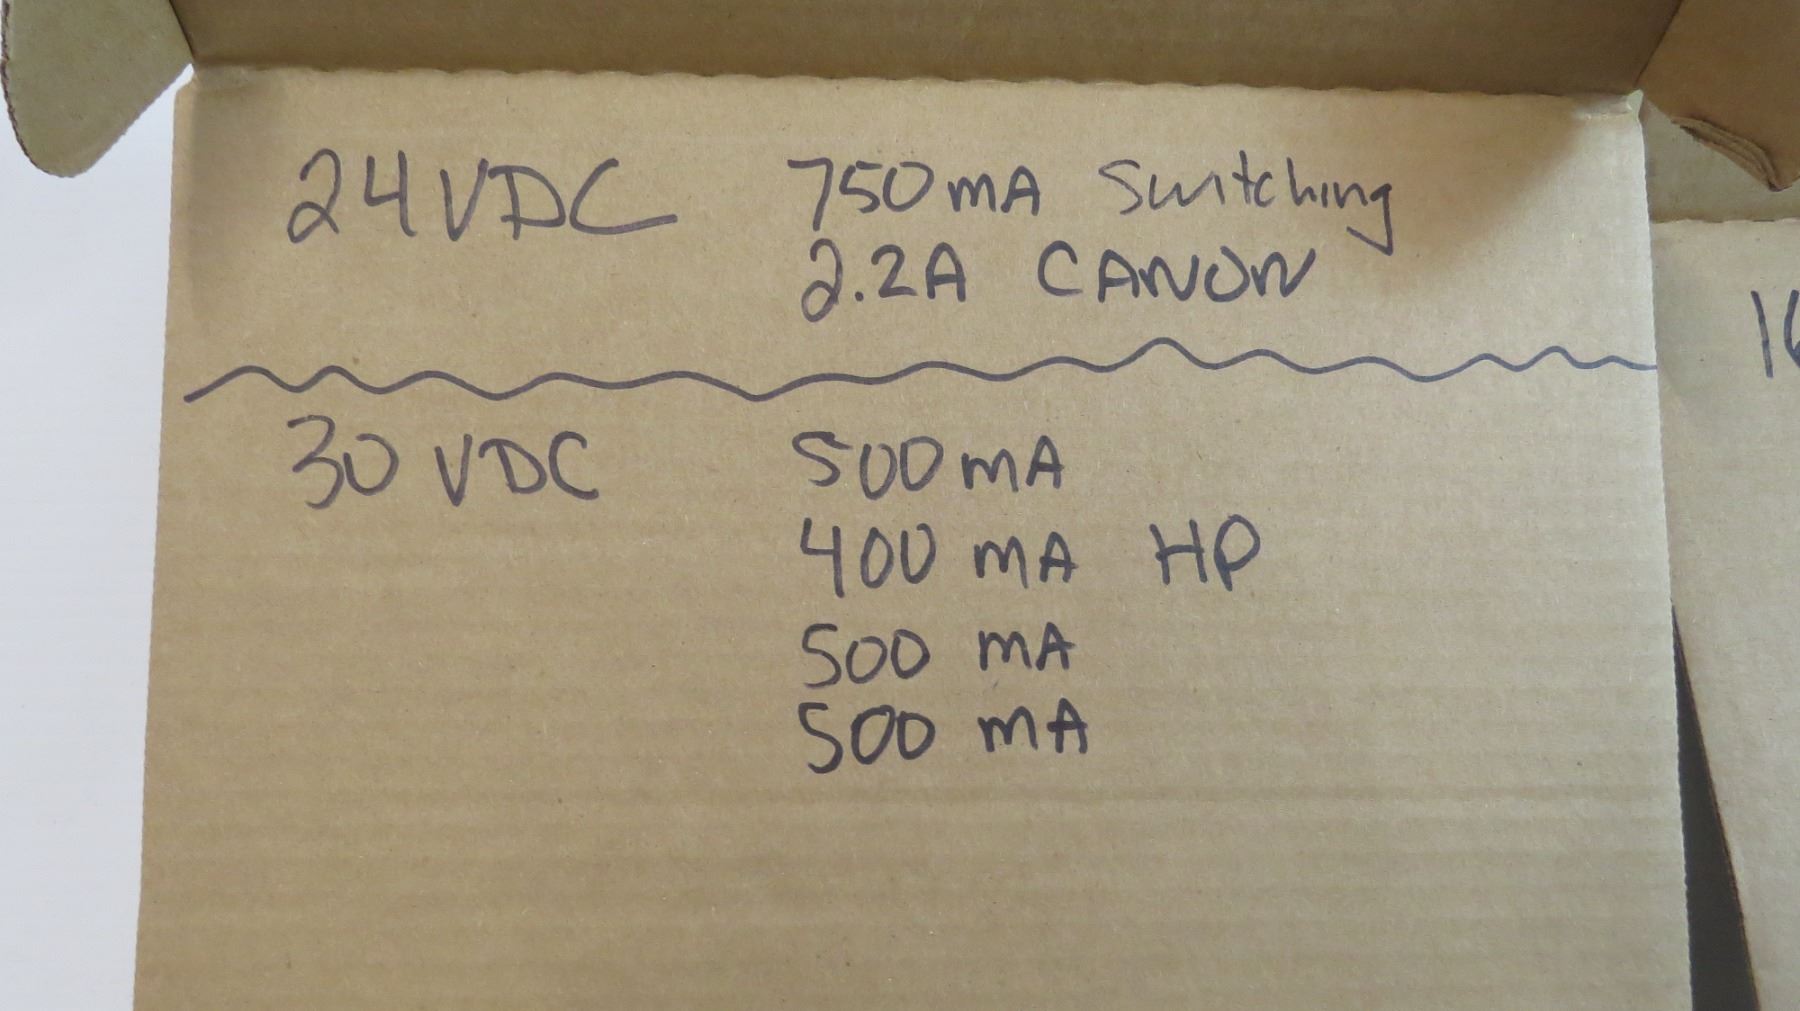 24VDC 750mA Switching
2.2A CANON
30 VDC 500mA
400 mA HP
500 mA
500 mA